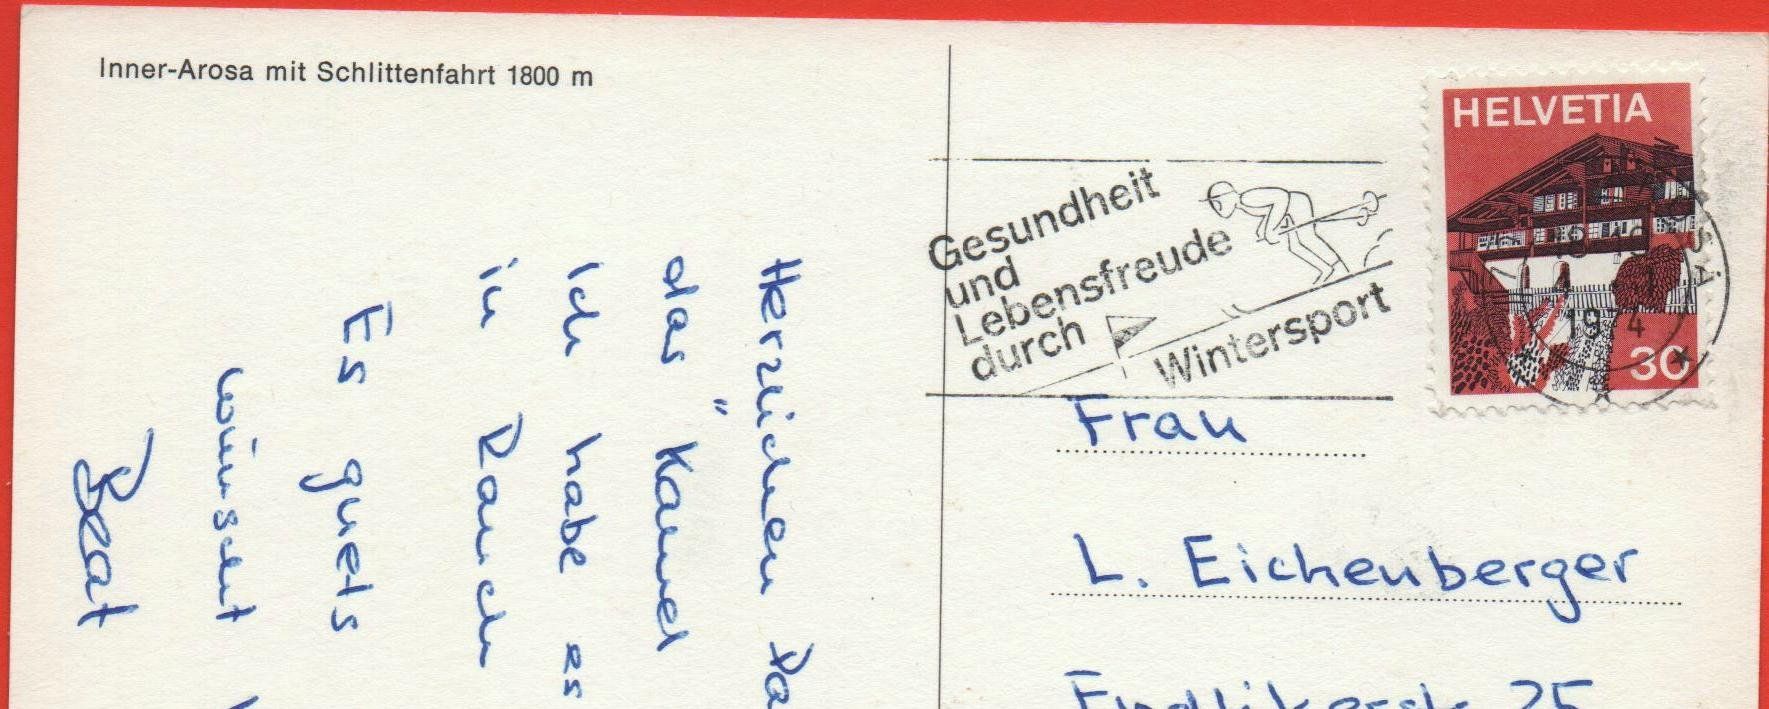 Inner-Arosa mit Schlittenfahrt 1800 m
Herzlichen
das "Kamel
Ich habe es
in Rauch
Es guets
wünscht
Beat
Gesundheit
und
Lebensfreude
durch
Wintersport
HELVETIA
30
1974
Frau
L. Eichenberger
25